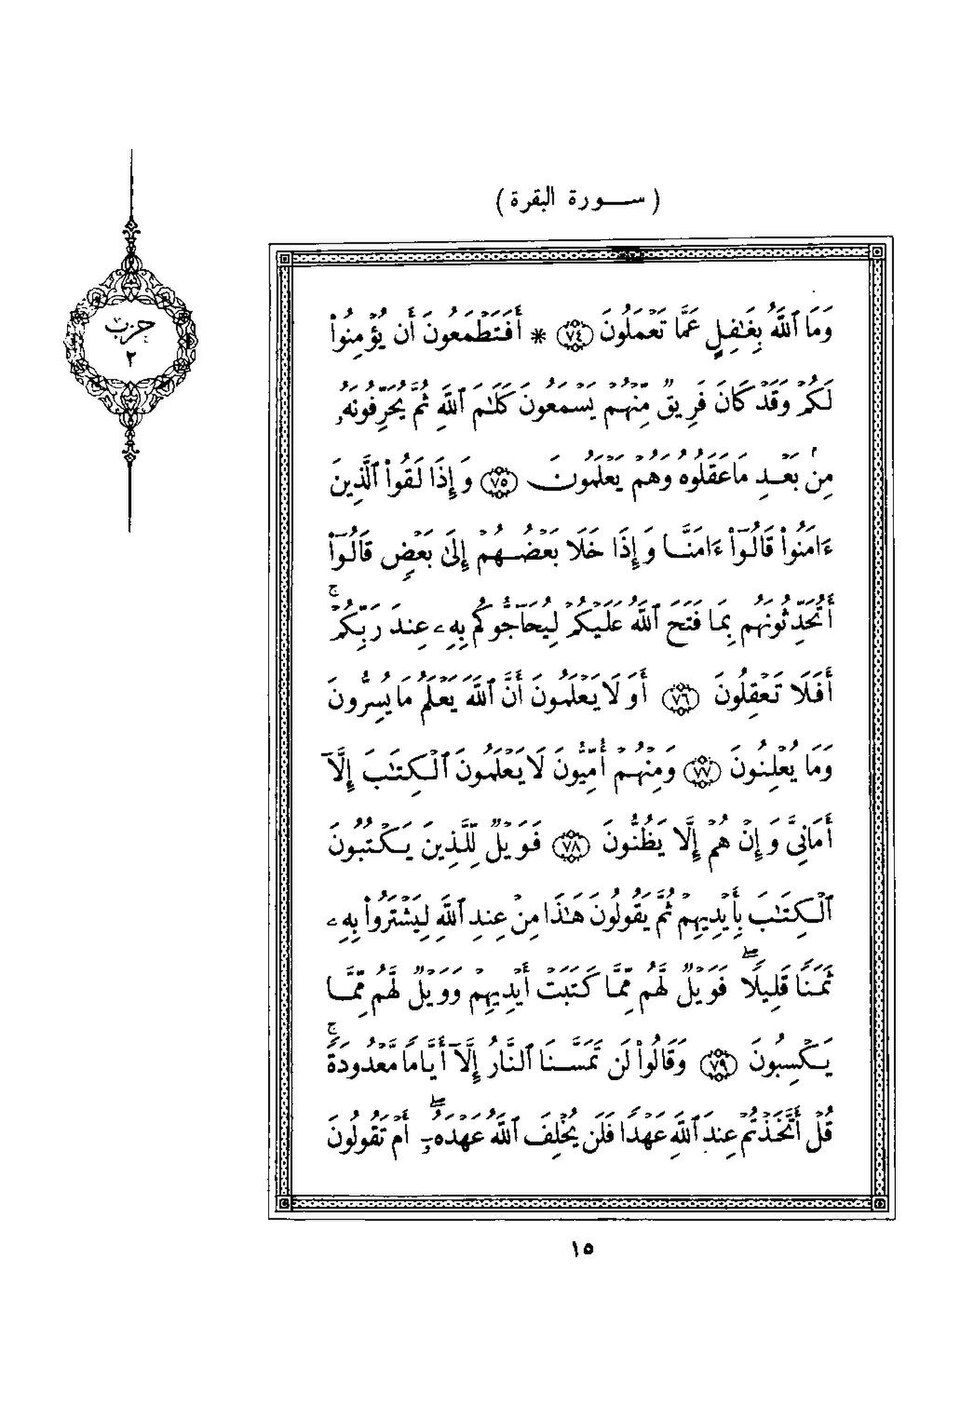 (ســورة البقرة)
حزب
٢
وَمَا ٱللَّهُ بِغَٰفِلٍ عَمَّا تَعْمَلُونَ ﴿٧٤﴾ * أَفَتَطْمَعُونَ أَن يُؤْمِنُوا۟
لَكُمْ وَقَدْ كَانَ فَرِيقٌ مِّنْهُمْ يَسْمَعُونَ كَلَٰمَ ٱللَّهِ ثُمَّ يُحَرِّفُونَهُۥ
مِنۢ بَعْدِ مَا عَقَلُوهُ وَهُمْ يَعْلَمُونَ ﴿٧٥﴾ وَإِذَا لَقُوا۟ ٱلَّذِينَ
ءَامَنُوا۟ قَالُوٓا۟ ءَامَنَّا وَإِذَا خَلَا بَعْضُهُمْ إِلَىٰ بَعْضٍ قَالُوٓا۟
أَتُحَدِّثُونَهُم بِمَا فَتَحَ ٱللَّهُ عَلَيْكُمْ لِيُحَآجُّوكُم بِهِۦ عِندَ رَبِّكُمْ ۚ
أَفَلَا تَعْقِلُونَ ﴿٧٦﴾ أَوَلَا يَعْلَمُونَ أَنَّ ٱللَّهَ يَعْلَمُ مَا يُسِرُّونَ
وَمَا يُعْلِنُونَ ﴿٧٧﴾ وَمِنْهُمْ أُمِّيُّونَ لَا يَعْلَمُونَ ٱلْكِتَٰبَ إِلَّآ
أَمَانِىَّ وَإِنْ هُمْ إِلَّا يَظُنُّونَ ﴿٧٨﴾ فَوَيْلٌ لِّلَّذِينَ يَكْتُبُونَ
ٱلْكِتَٰبَ بِأَيْدِيهِمْ ثُمَّ يَقُولُونَ هَٰذَا مِنْ عِندِ ٱللَّهِ لِيَشْتَرُوا۟ بِهِۦ
ثَمَنًا قَلِيلًا ۖ فَوَيْلٌ لَّهُم مِّمَّا كَتَبَتْ أَيْدِيهِمْ وَوَيْلٌ لَّهُم مِّمَّا
يَكْسِبُونَ ﴿٧٩﴾ وَقَالُوا۟ لَن تَمَسَّنَا ٱلنَّارُ إِلَّآ أَيَّامًا مَّعْدُودَةً ۚ
قُلْ أَتَّخَذْتُمْ عِندَ ٱللَّهِ عَهْدًا فَلَن يُخْلِفَ ٱللَّهُ عَهْدَهُۥٓ ۖ أَمْ تَقُولُونَ
١٥